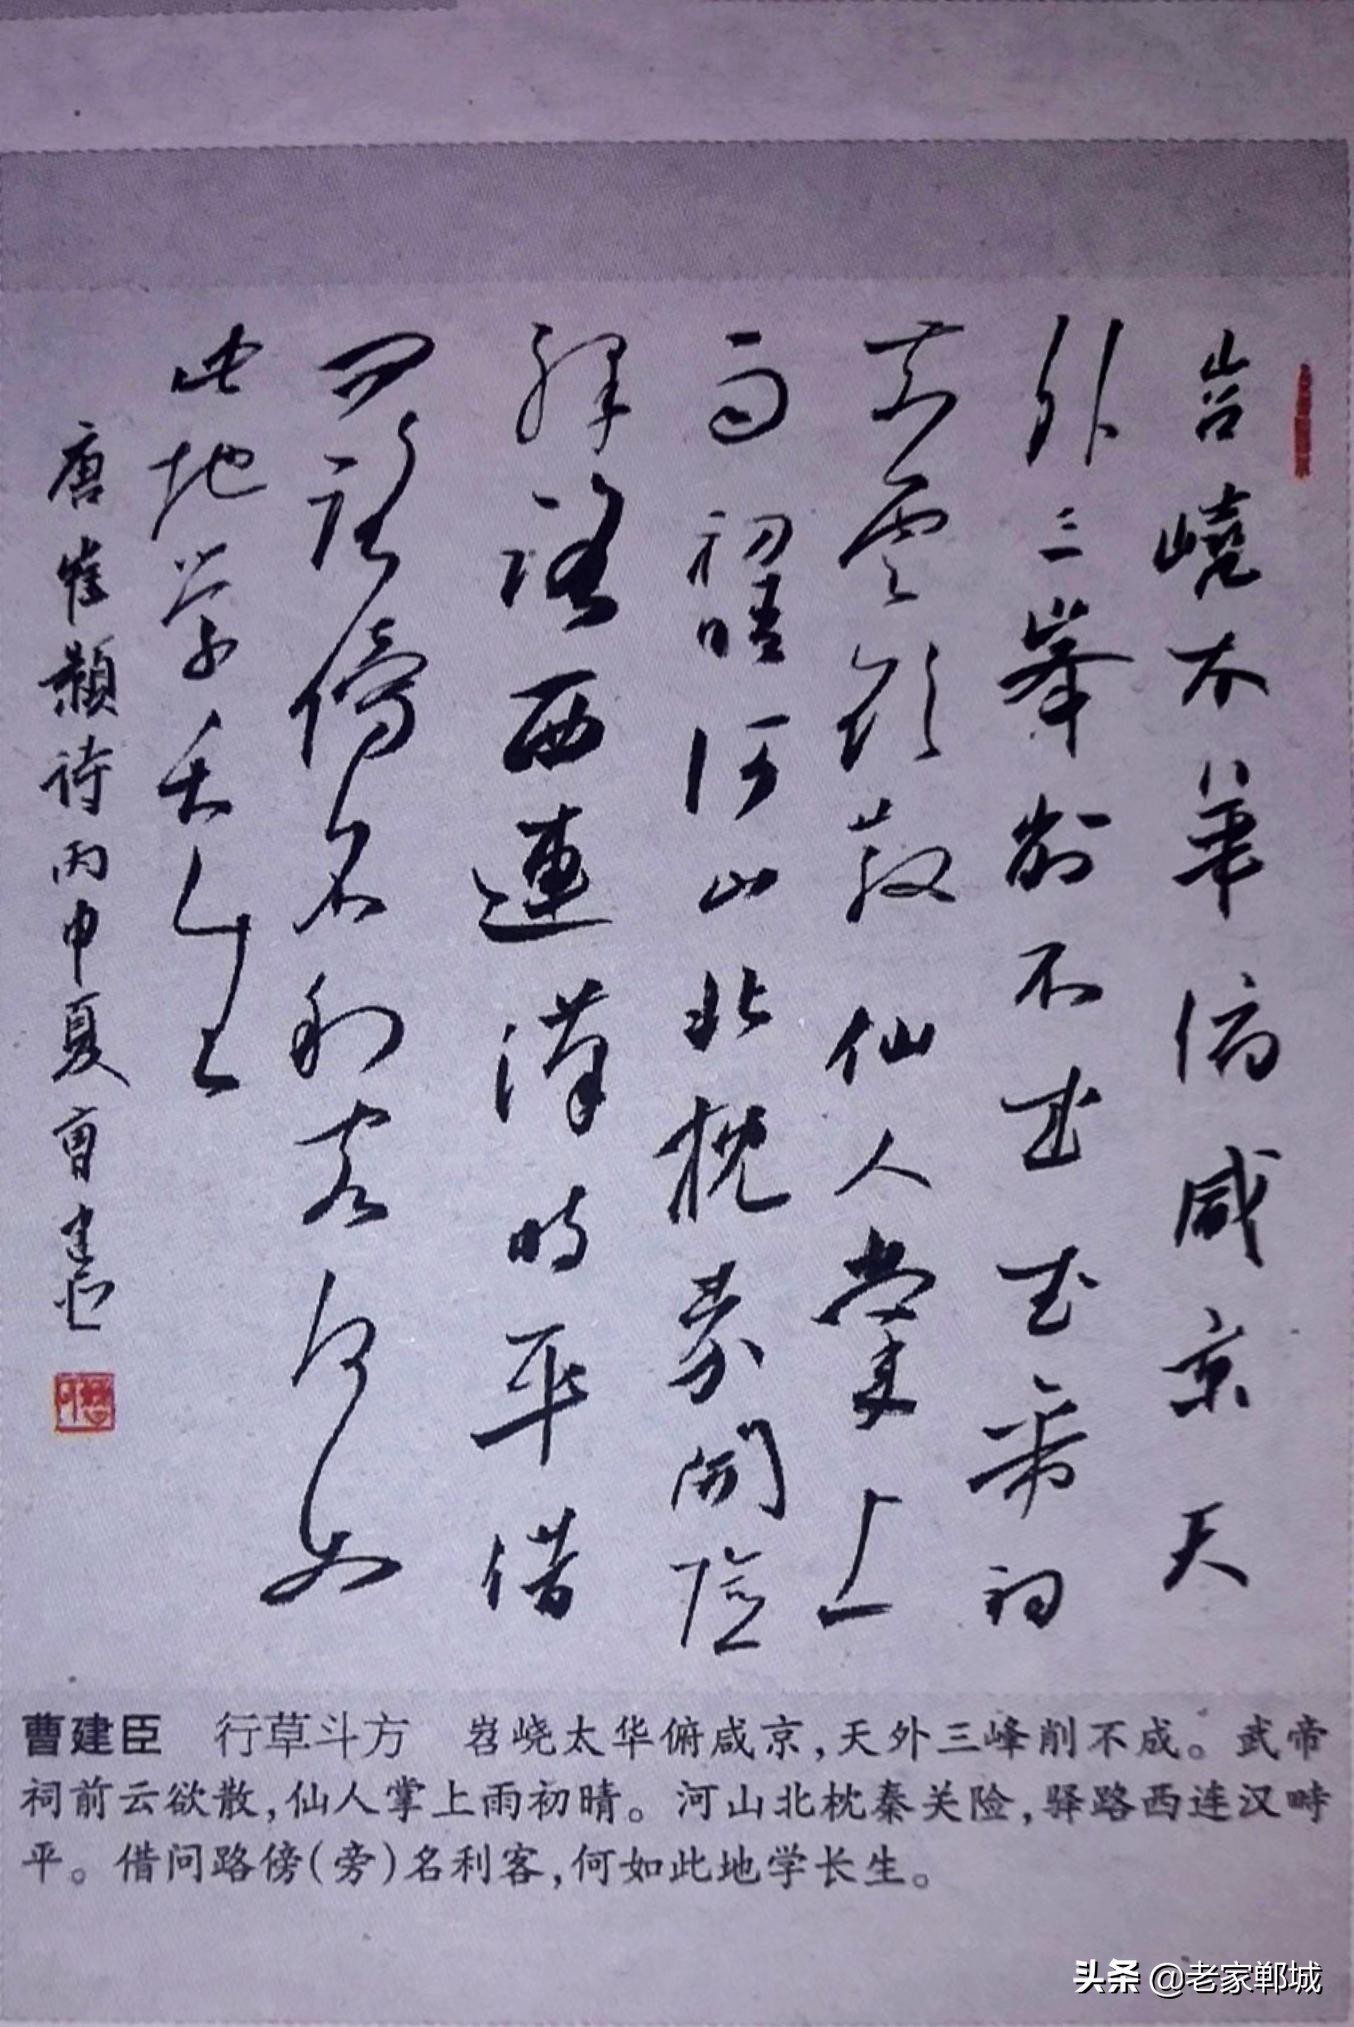 岧嶢太華俯咸京天
外三峯削不成武帝祠
前雲欲散仙人掌上
雨初晴河山北枕秦關險
驛路西連漢畤平借
問路傍名利客何如
此地学長生
唐崔颢诗丙申夏曹建臣
曹建臣 行草斗方 岧峣太华俯咸京，天外三峰削不成。武帝
祠前云欲散，仙人掌上雨初晴。河山北枕秦关险，驿路西连汉畤
平。借问路傍（旁）名利客，何如此地学长生。
头条 @老家郸城